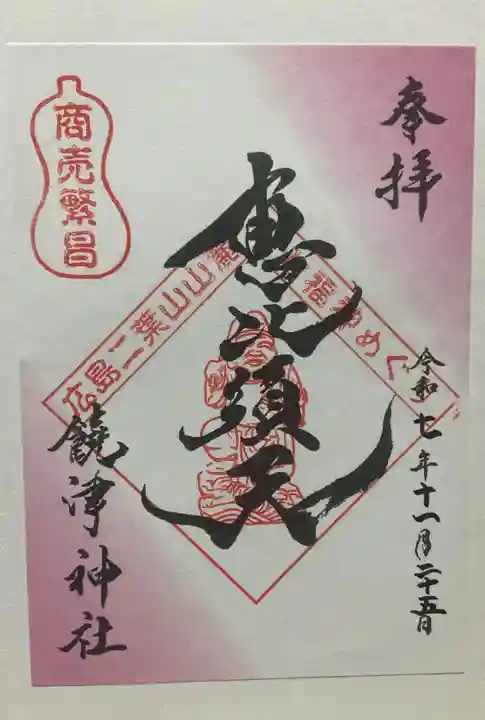 奉拝
令和七年十一月二十五日
恵比須天
広島二葉山山麓
福神めぐ
商売繁昌
饒津神社